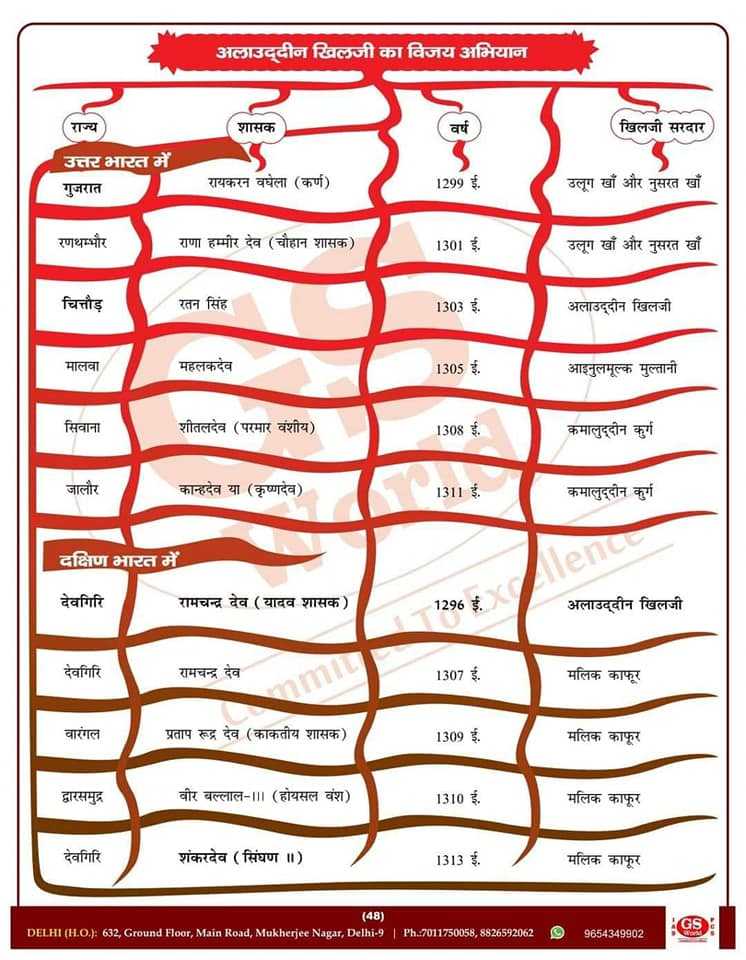 अलाउद्दीन खिलजी का विजय अभियान
राज्य शासक वर्ष खिलजी सरदार
उत्तर भारत में
गुजरात रायकरन वघेला (कर्ण) 1299 ई. उलूग खाँ और नुसरत खाँ
रणथम्भौर राणा हम्मीर देव (चौहान शासक) 1301 ई. उलूग खाँ और नुसरत खाँ
चित्तौड़ रतन सिंह 1303 ई. अलाउद्दीन खिलजी
मालवा महलकदेव 1305 ई. आइनुलमूल्क मुल्तानी
सिवाना शीतलदेव (परमार वंशीय) 1308 ई. कमालुद्दीन कुर्ग
जालौर कान्हदेव या (कृष्णदेव) 1311 ई. कमालुद्दीन कुर्ग
दक्षिण भारत में
देवगिरि रामचन्द्र देव (यादव शासक) 1296 ई. अलाउद्दीन खिलजी
देवगिरि रामचन्द्र देव 1307 ई. मलिक काफूर
वारंगल प्रताप रूद्र देव (काकतीय शासक) 1309 ई. मलिक काफूर
द्वारसमुद्र वीर बल्लाल-III (होयसल वंश) 1310 ई. मलिक काफूर
देवगिरि शंकरदेव (सिंघण II) 1313 ई. मलिक काफूर
GS World
Committed To Excellence
(48)
DELHI (H.O.): 632, Ground Floor, Main Road, Mukherjee Nagar, Delhi-9 | Ph.:7011750058, 8826592062 9654349902
IAS GS World PCS